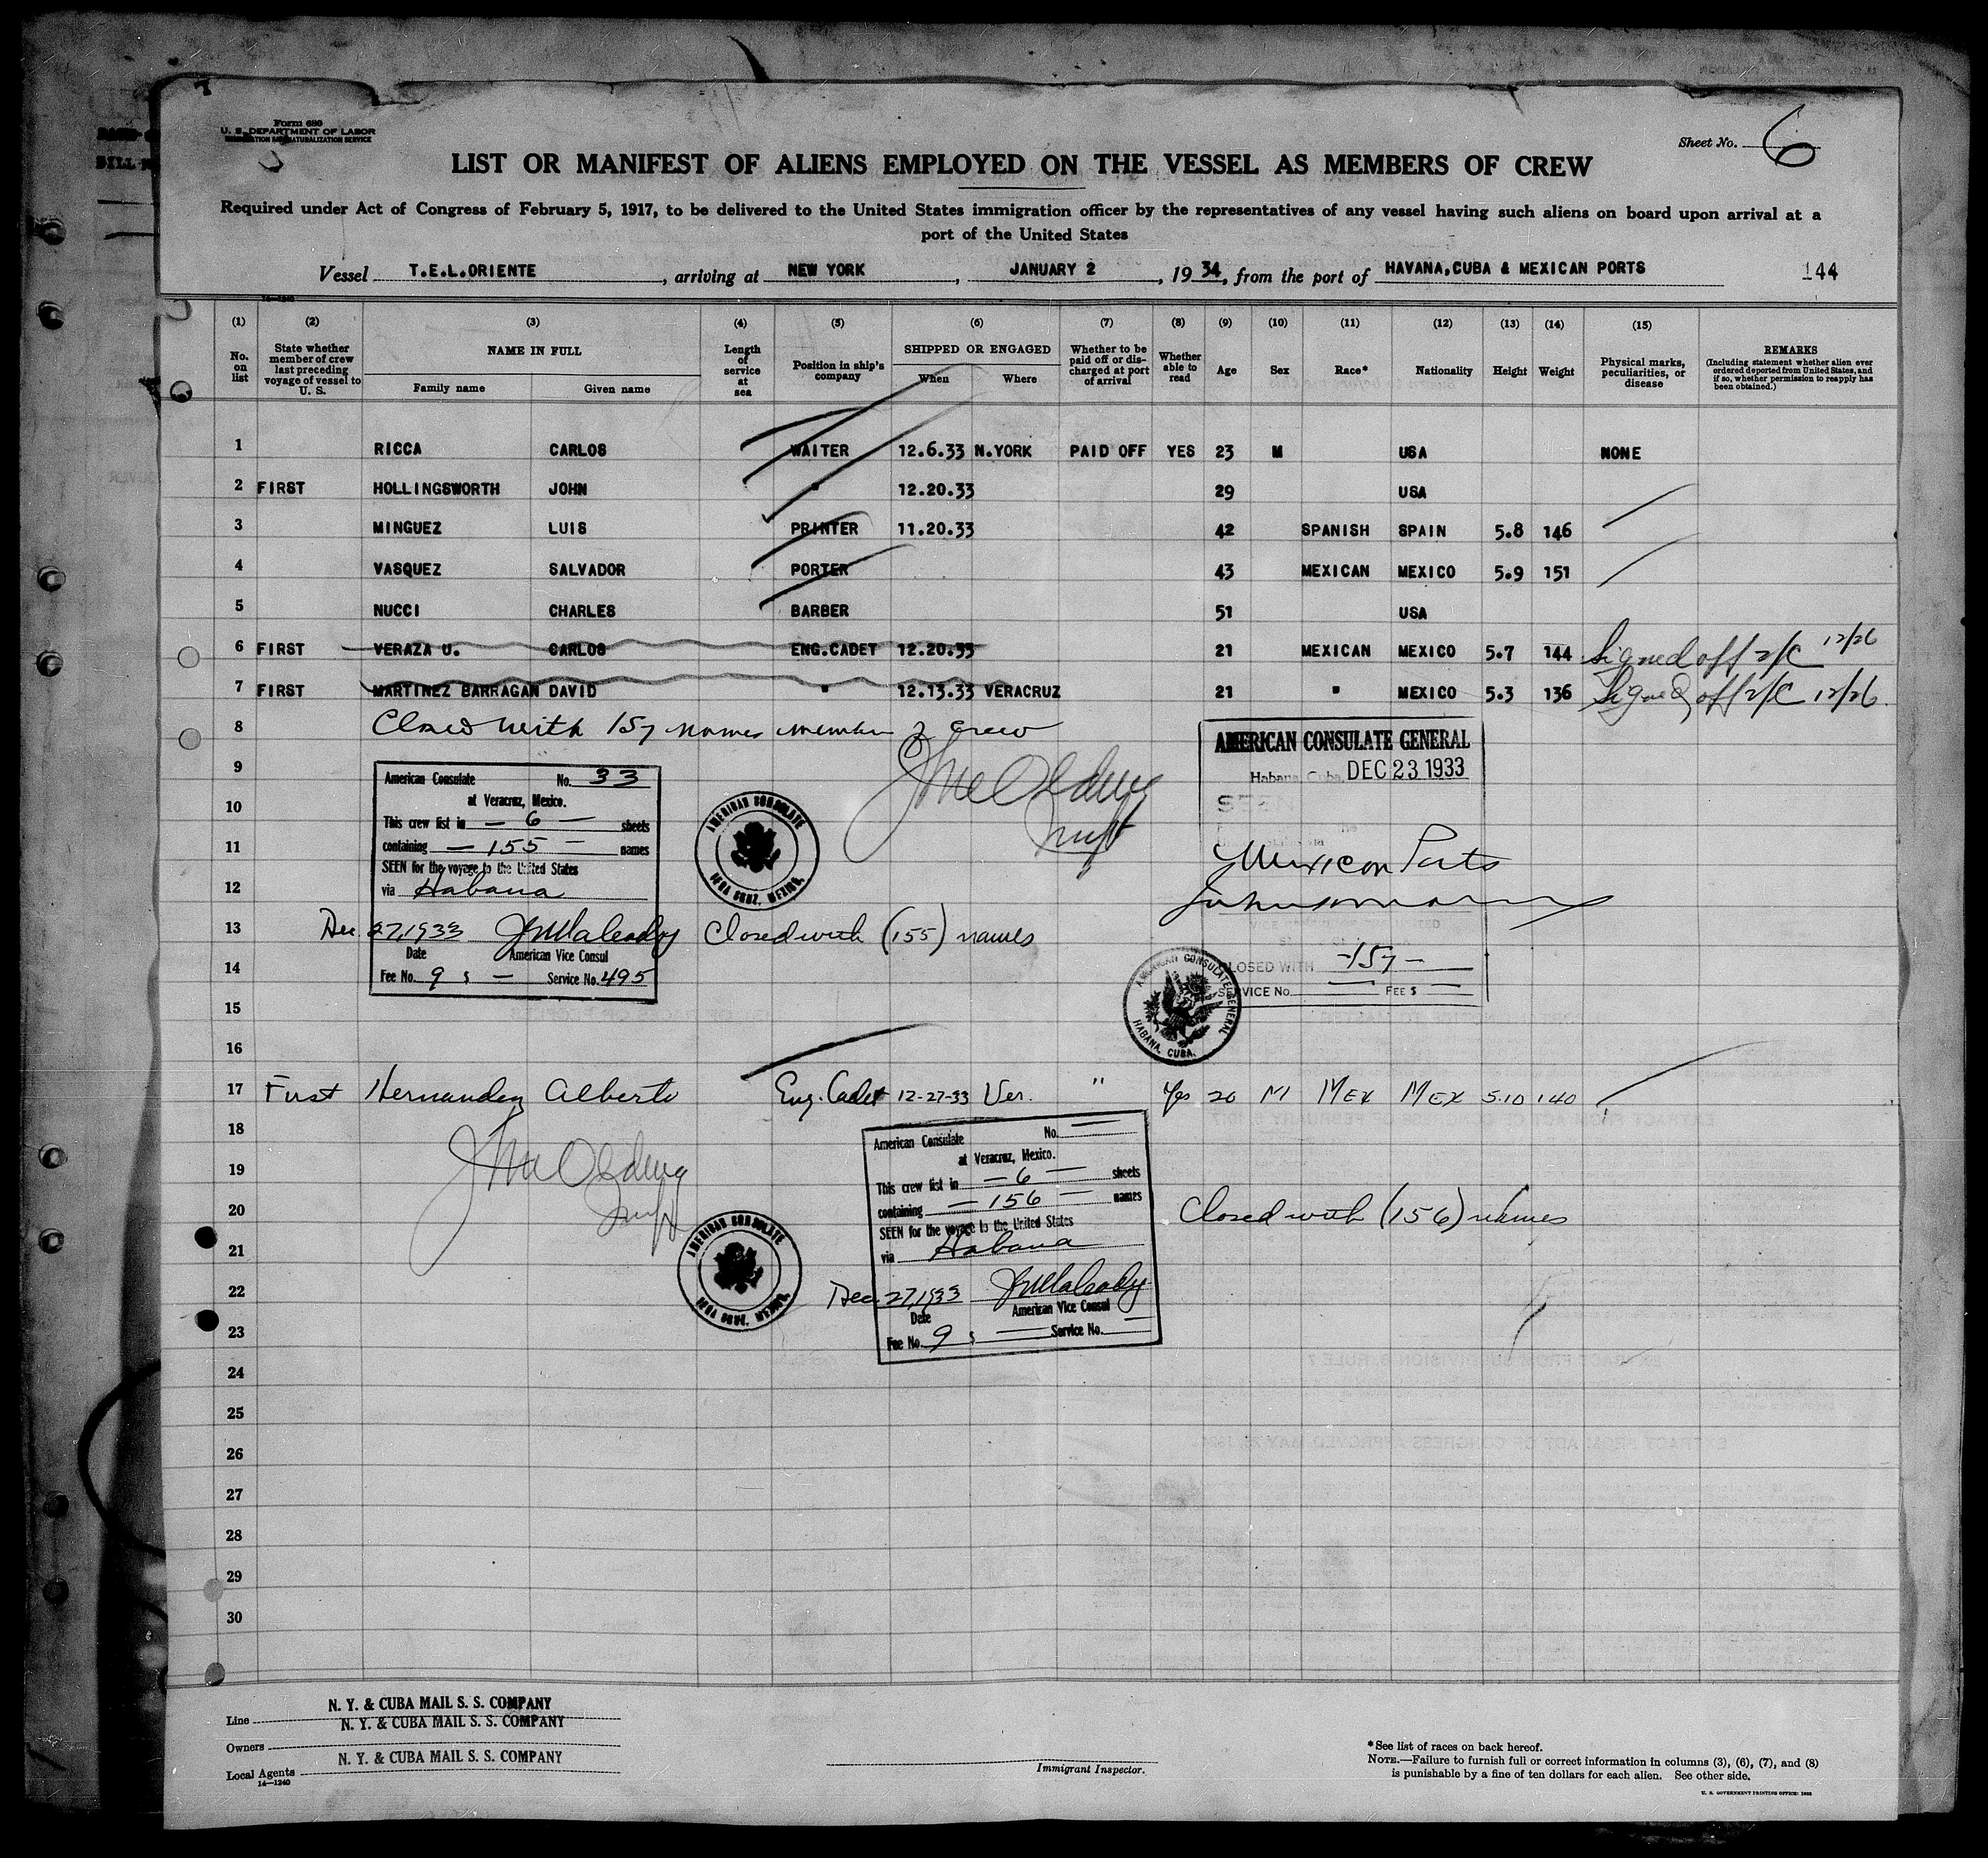 Form 680
U. S. DEPARTMENT OF LABOR
IMMIGRATION AND NATURALIZATION SERVICE
Sheet No. 6
LIST OR MANIFEST OF ALIENS EMPLOYED ON THE VESSEL AS MEMBERS OF CREW
Required under Act of Congress of February 5, 1917, to be delivered to the United States immigration officer by the representatives of any vessel having such aliens on board upon arrival at a
port of the United States
Vessel T.E.L.ORIENTE, arriving at NEW YORK, JANUARY 2, 1934, from the port of HAVANA,CUBA & MEXICAN PORTS 144
14—1240
(1) (2) (3) (4) (5) (6) (7) (8) (9) (10) (11) (12) (13) (14) (15)
No. on list
State whether member of crew last preceding voyage of vessel to U. S.
NAME IN FULL
Family name Given name
Length of service at sea
Position in ship's company
SHIPPED OR ENGAGED
When Where
Whether to be paid off or discharged at port of arrival
Whether able to read
Age Sex Race* Nationality Height Weight
Physical marks, peculiarities, or disease
REMARKS
(Including statement whether alien ever ordered deported from United States, and if so, whether permission to reapply has been obtained.)
1 RICCA CARLOS WAITER 12.6.33 N.YORK PAID OFF YES 23 M USA NONE
2 FIRST HOLLINGSWORTH JOHN " 12.20.33 29 USA
3 MINGUEZ LUIS PRINTER 11.20.33 42 SPANISH SPAIN 5.8 146
4 VASQUEZ SALVADOR PORTER 43 MEXICAN MEXICO 5.9 151
5 NUCCI CHARLES BARBER 51 USA
6 FIRST VERAZA U. CARLOS ENG.CADET 12.20.33 21 MEXICAN MEXICO 5.7 144 Signed off 12/26
7 FIRST MARTINEZ BARRAGAN DAVID " 12.13.33 VERACRUZ 21 " MEXICO 5.3 136 Signed off 12/26
8 Closed with 157 names member of crew
9
10
11
12
13
14
15
16
AMERICAN CONSULATE GENERAL
Habana, Cuba, DEC 23 1933
SEEN
Mexican Ports
CLOSED WITH -157-
SERVICE No. FEE $
AMERICAN CONSULATE GENERAL
HABANA, CUBA.
American Consulate No. 33
at Veracruz, Mexico.
This crew list in — 6 — sheets
containing — 155 — names
SEEN for the voyage to the United States
via Habana
Dec. 27, 1933
Date American Vice Consul
Fee No. 9 $ — Service No. 495
AMERICAN CONSULATE
VERA CRUZ, MEXICO.
Closed with (155) names
17 First Hernandez Alberto Eng. Cadet 12-27-33 Ver. " Yes 20 M MEX MEX 5.10 140
18
19
20
21
22
23
24
25
26
27
28
29
30
American Consulate No. —
at Veracruz, Mexico.
This crew list in — 6 — sheets
containing — 156 — names
SEEN for the voyage to the United States
via Habana
Dec. 27, 1933
Date American Vice Consul
Fee No. 9 $ — Service No. —
AMERICAN CONSULATE
VERA CRUZ, MEXICO.
Closed with (156) names
N. Y. & CUBA MAIL S. S. COMPANY
Line N. Y. & CUBA MAIL S. S. COMPANY
Owners
Local Agents N. Y. & CUBA MAIL S. S. COMPANY
14—1240
Immigrant Inspector.
*See list of races on back hereof.
NOTE.—Failure to furnish full or correct information in columns (3), (6), (7), and (8)
is punishable by a fine of ten dollars for each alien. See other side.